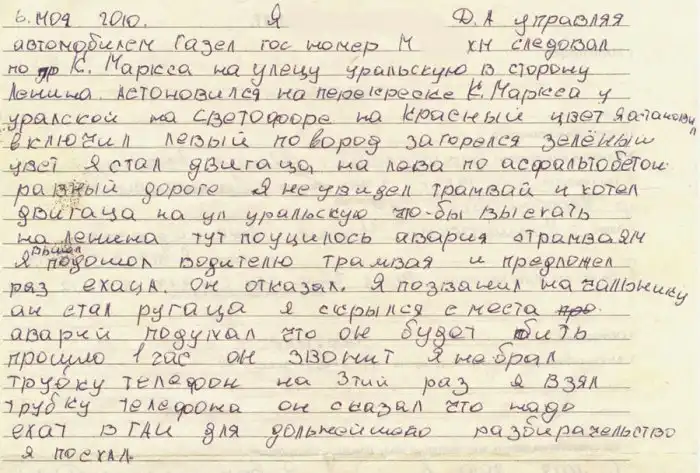 6. ноя 2010. Я Д.А управляя
автомобилем Газел гос номер М хн следовал
по пр К. Маркса на улецу уральскую в сторону
Ленина. Астоновился на перекреске К. Маркса у
уральской на светофоре на Красный цвет я астановил
включил левый по вород загорелся зелёный
цвет я стал двигаца на лева по асфальтобетон
равный дороге Я не увидел трамвай и хотел
двигаца на ул уральскую что-бы выехать
на Ленина тут поуцилось аварияströмваям
Я вышел подошол водителю трамвая и предложел
раз ехаца. он отказал. Я позванил начальнику
ан стал ругаца я скрылся с места про
аварий подумал что он будет бить
прошло 1 час он звонит я не брал
трубку телефон на 3тий раз я взял
трубку телефона он сказал что надо
ехат в ГАИ для дольнейшово разбирательство
я поехал.